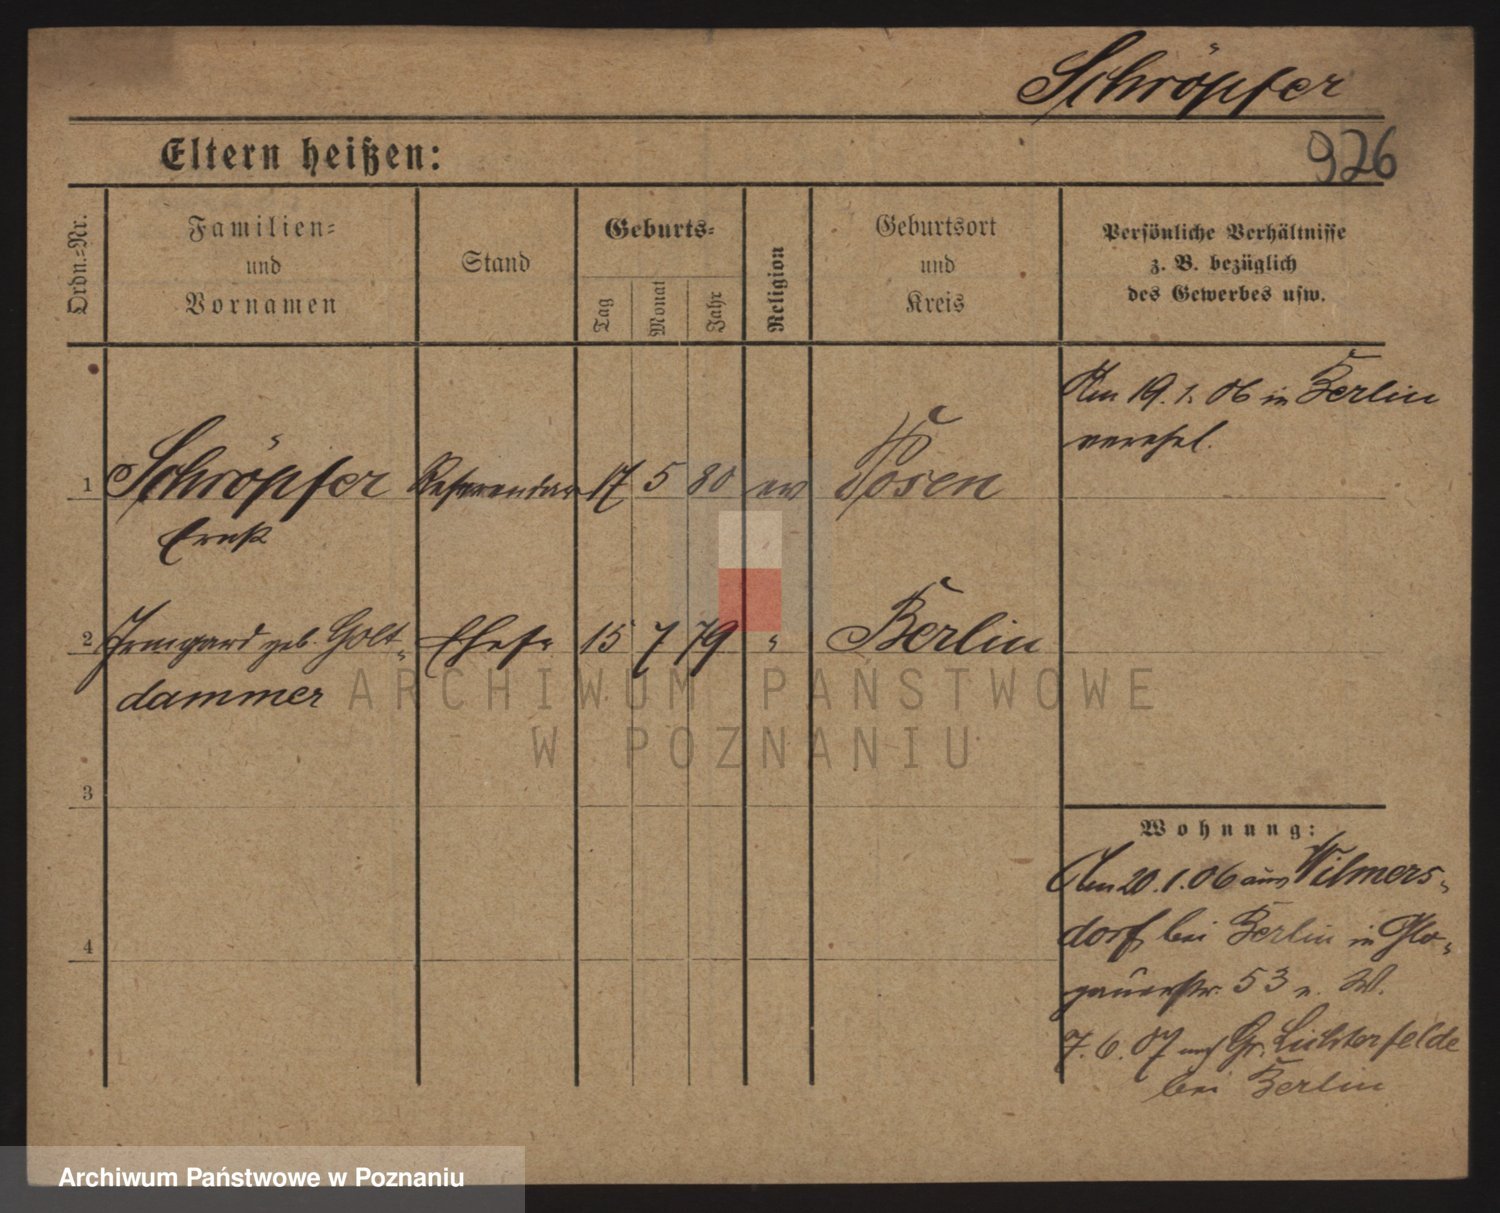 Schröpfer
926
Eltern heißen:
Ordn.-Nr.
Familien-
und
Vornamen
Stand
Geburts-
Tag
Monat
Jahr
Religion
Geburtsort
und
Kreis
Persönliche Verhältnisse
z. B. bezüglich
des Gewerbes usw.
Am 19. 1. 06 in Berlin
verehel.
1 Schröpfer Referendar 17 5 80 ev Posen
Ernst
2 Irmgard geb. Golt- Ehefr 15 7 79 " Berlin
dammer
3
4
Wohnung:
Am 20. 1. 06 aus Wilmers-
dorf bei Berlin in Glo-
gauerstr. 53 v. W.
7. 6. 07 nach Gr. Lichterfelde
bei Berlin
ARCHIWUM PAŃSTWOWE
W POZNANIU
Archiwum Państwowe w Poznaniu